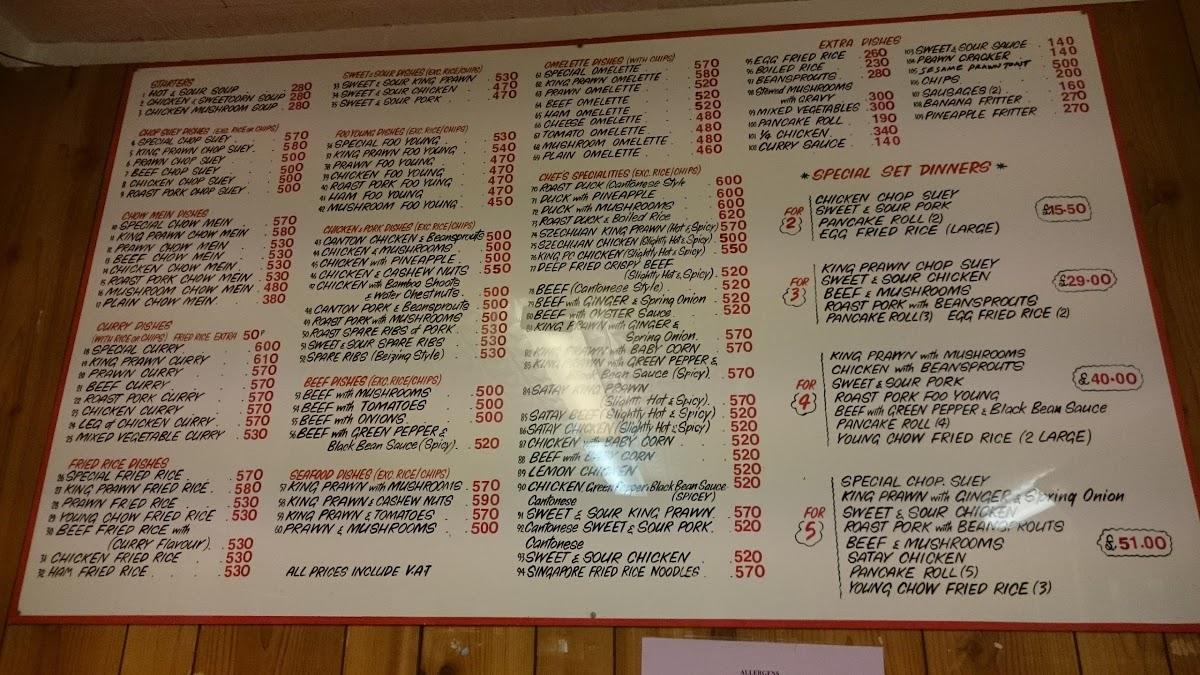 STARTERS
1 HOT & SOUR SOUP 280
2 CHICKEN & SWEETCORN SOUP 280
3 CHICKEN MUSHROOM SOUP 280
CHOP SUEY DISHES (EXC. RICE OR CHIPS)
4 SPECIAL CHOP SUEY 570
5 KING PRAWN CHOP SUEY 580
6 PRAWN CHOP SUEY 500
7 BEEF CHOP SUEY 500
8 CHICKEN CHOP SUEY 500
9 ROAST PORK CHOP SUEY 500
CHOW MEIN DISHES
10 SPECIAL CHOW MEIN 570
11 KING PRAWN CHOW MEIN 580
12 PRAWN CHOW MEIN 530
13 BEEF CHOW MEIN 530
14 CHICKEN CHOW MEIN 530
15 ROAST PORK CHOW MEIN 530
16 MUSHROOM CHOW MEIN 480
17 PLAIN CHOW MEIN 380
CURRY DISHES
(WITH RICE OR CHIPS) FRIED RICE EXTRA 50P
18 SPECIAL CURRY 600
19 KING PRAWN CURRY 610
20 PRAWN CURRY 570
21 BEEF CURRY 570
22 ROAST PORK CURRY 570
23 CHICKEN CURRY 570
24 LEG OF CHICKEN CURRY 570
25 MIXED VEGETABLE CURRY 530
FRIED RICE DISHES
26 SPECIAL FRIED RICE 570
27 KING PRAWN FRIED RICE 580
28 PRAWN FRIED RICE 530
29 YOUNG CHOW FRIED RICE 530
30 BEEF FRIED RICE with
(CURRY Flavour) 530
31 CHICKEN FRIED RICE 530
32 HAM FRIED RICE 530
SWEET & SOUR DISHES (EXC. RICE/CHIPS)
33 SWEET & SOUR KING PRAWN 530
34 SWEET & SOUR CHICKEN 470
35 SWEET & SOUR PORK 470
FOO YOUNG DISHES (EXC. RICE/CHIPS)
36 SPECIAL FOO YOUNG 530
37 KING PRAWN FOO YOUNG 540
38 PRAWN FOO YOUNG 470
39 CHICKEN FOO YOUNG 470
40 ROAST PORK FOO YUNG 470
41 HAM FOO YOUNG 470
42 MUSHROOM FOO YOUNG 450
CHICKEN & PORK DISHES (EXC. RICE/CHIPS)
43 CANTON CHICKEN & Beansprouts 500
44 CHICKEN & MUSHROOMS 500
45 CHICKEN with PINEAPPLE 500
46 CHICKEN & CASHEW NUTS 550
47 CHICKEN with Bamboo Shoots
& Water Chestnuts 500
48 CANTON PORK & Beansprouts 500
49 ROAST PORK with MUSHROOMS 500
50 ROAST SPARE RIBS of PORK 530
51 SWEET & SOUR SPARE RIBS 530
52 SPARE RIBS (Berging Style) 530
BEEF DISHES (EXC. RICE/CHIPS)
53 BEEF with MUSHROOMS 500
54 BEEF with TOMATOES 500
55 BEEF with ONIONS 500
56 BEEF with GREEN PEPPER &
Black Bean Sauce (Spicy) 520
SEAFOOD DISHES (EXC. RICE/CHIPS)
57 KING PRAWN with MUSHROOMS 570
58 KING PRAWN & CASHEW NUTS 590
59 KING PRAWN & TOMATOES 570
60 PRAWN & MUSHROOMS 500
ALL PRICES INCLUDE V.A.T
OMELETTE DISHES (WITH CHIPS)
61 SPECIAL OMELETTE 570
62 KING PRAWN OMELETTE 580
63 PRAWN OMELETTE 520
64 BEEF OMELETTE 520
65 HAM OMELETTE 520
66 CHEESE OMELETTE 480
67 TOMATO OMELETTE 480
68 MUSHROOM OMELETTE 480
69 PLAIN OMELETTE 460
CHEF'S SPECIALITIES (EXC. RICE/CHIPS)
70 ROAST DUCK (Cantonese Style 600
71 DUCK with PINEAPPLE 600
72 DUCK with MUSHROOMS 600
73 ROAST DUCK & Boiled Rice 620
74 SZECHUAN KING PRAWN (Hot & Spicy) 570
75 SZECHUAN CHICKEN (Slightly Hot & Spicy) 500
76 KING PO CHICKEN (Slightly Hot & Spicy) 550
77 DEEP FRIED CRISPY BEEF
(Slightly Hot & Spicy) 520
78 BEEF (Cantonese Style) 520
79 BEEF with GINGER & Spring Onion 520
80 BEEF with OYSTER Sauce 520
81 KING PRAWN with GINGER &
Spring Onion 570
82 KING PRAWN with BABY CORN 570
83 KING PRAWN with GREEN PEPPER &
Black Bean Sauce (Spicy) 570
84 SATAY KING PRAWN
(Slightly Hot & Spicy) 570
85 SATAY BEEF (Slightly Hot & Spicy) 520
86 SATAY CHICKEN (Slightly Hot & Spicy) 520
87 CHICKEN with BABY CORN 520
88 BEEF with BABY CORN 520
89 LEMON CHICKEN 520
90 CHICKEN Green Pepper & Black Bean Sauce
(SPICEY) 520
Cantonese
91 SWEET & SOUR KING PRAWN 570
92 Cantonese SWEET & SOUR PORK 520
Cantonese
93 SWEET & SOUR CHICKEN 520
94 SINGAPORE FRIED RICE NOODLES 570
EXTRA DISHES
95 EGG FRIED RICE 260
96 BOILED RICE 230
97 BEANSPROUTS 280
98 Stewed MUSHROOMS
with GRAVY 300
99 MIXED VEGETABLES 300
100 PANCAKE ROLL 190
101 1/4 CHICKEN 340
102 CURRY SAUCE 140
103 SWEET & SOUR SAUCE 140
104 PRAWN CRACKER 140
105 SESAME PRAWN TOAST 500
106 CHIPS 200
107 SAUSAGES (2) 160
108 BANANA FRITTER 270
109 PINEAPPLE FRITTER 270
* SPECIAL SET DINNERS *
FOR 2
CHICKEN CHOP SUEY
SWEET & SOUR PORK
PANCAKE ROLL (2)
EGG FRIED RICE (LARGE)
£15·50
FOR 3
KING PRAWN CHOP SUEY
SWEET & SOUR CHICKEN
BEEF & MUSHROOMS
ROAST PORK with BEANSPROUTS
PANCAKE ROLL (3) EGG FRIED RICE (2)
£29·00
FOR 4
KING PRAWN with MUSHROOMS
CHICKEN with BEANSPROUTS
SWEET & SOUR PORK
ROAST PORK FOO YOUNG
BEEF with GREEN PEPPER & Black Bean Sauce
PANCAKE ROLL (4)
YOUNG CHOW FRIED RICE (2 LARGE)
£40·00
FOR 5
SPECIAL CHOP. SUEY
KING PRAWN with GINGER & Spring Onion
SWEET & SOUR CHICKEN
ROAST PORK with BEANSPROUTS
BEEF & MUSHROOMS
SATAY CHICKEN
PANCAKE ROLL (5)
YOUNG CHOW FRIED RICE (3)
£51.00
ALLERGENS